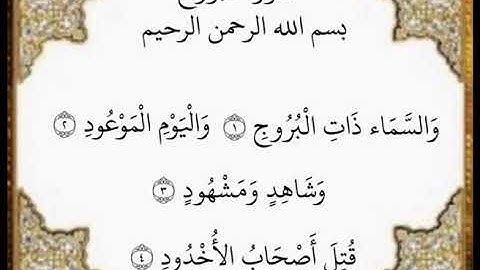 بسم الله الرحمن الرحيم
وَالسَّمَاء ذَاتِ الْبُرُوجِ ﴿١﴾ وَالْيَوْمِ الْمَوْعُودِ ﴿٢﴾
وَشَاهِدٍ وَمَشْهُودٍ ﴿٣﴾
قُتِلَ أَصْحَابُ الأُخْدُودِ ﴿٤﴾